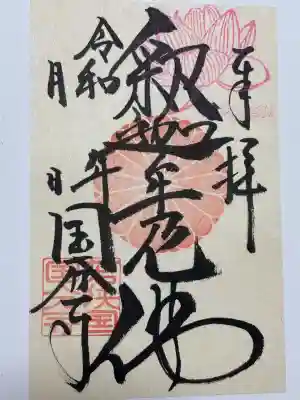 奉拝
釈迦牟尼佛
令和 年
月 日
国分寺